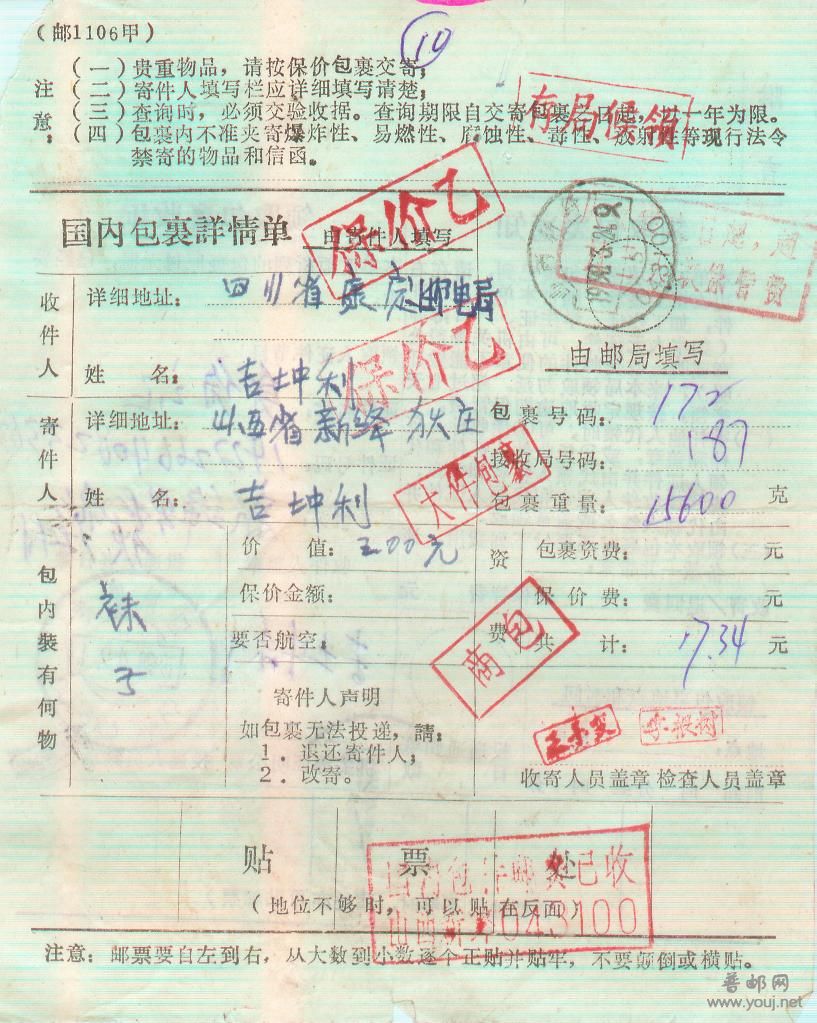 (邮1106甲)
10
注意:
(一)贵重物品,请按保价包裹交寄;
(二)寄件人填写栏应详细填写请楚;
(三)查询时,必须交验收据。查询期限自交寄包裹之日起,以一年为限。
(四)包裹内不准夹寄爆炸性、易燃性、腐蚀性、毒性、放射性等现行法令
禁寄的物品和信函。
存局候领
国内包裹詳情单
由寄件人填写
保价乙
收件人
详细地址:
四川省康定邮电局
保价乙
姓 名:
吉坤利
寄件人
详细地址:
山西省新绛 狄庄
姓 名:
吉坤利
大件包裹
由邮局填写
包裹号码:
172
接收局号码:
187
包裹重量:
15600
克
包内装有何物
袜子
价 值:
200元
保价金额:
要否航空:
商包
资费
包裹资费:
元
保价费:
元
共 计:
17.34
元
寄件人声明
如包裹无法投递,請:
1.退还寄件人;
2.改寄。
收寄人员盖章 检查人员盖章
贴 票 处
(地位不够时,可以贴在反面)
已收
043100
注意:邮票要自左到右,从大数到小数逐个正贴并贴牢,不要颠倒或横贴。
普邮网
www.youj.net